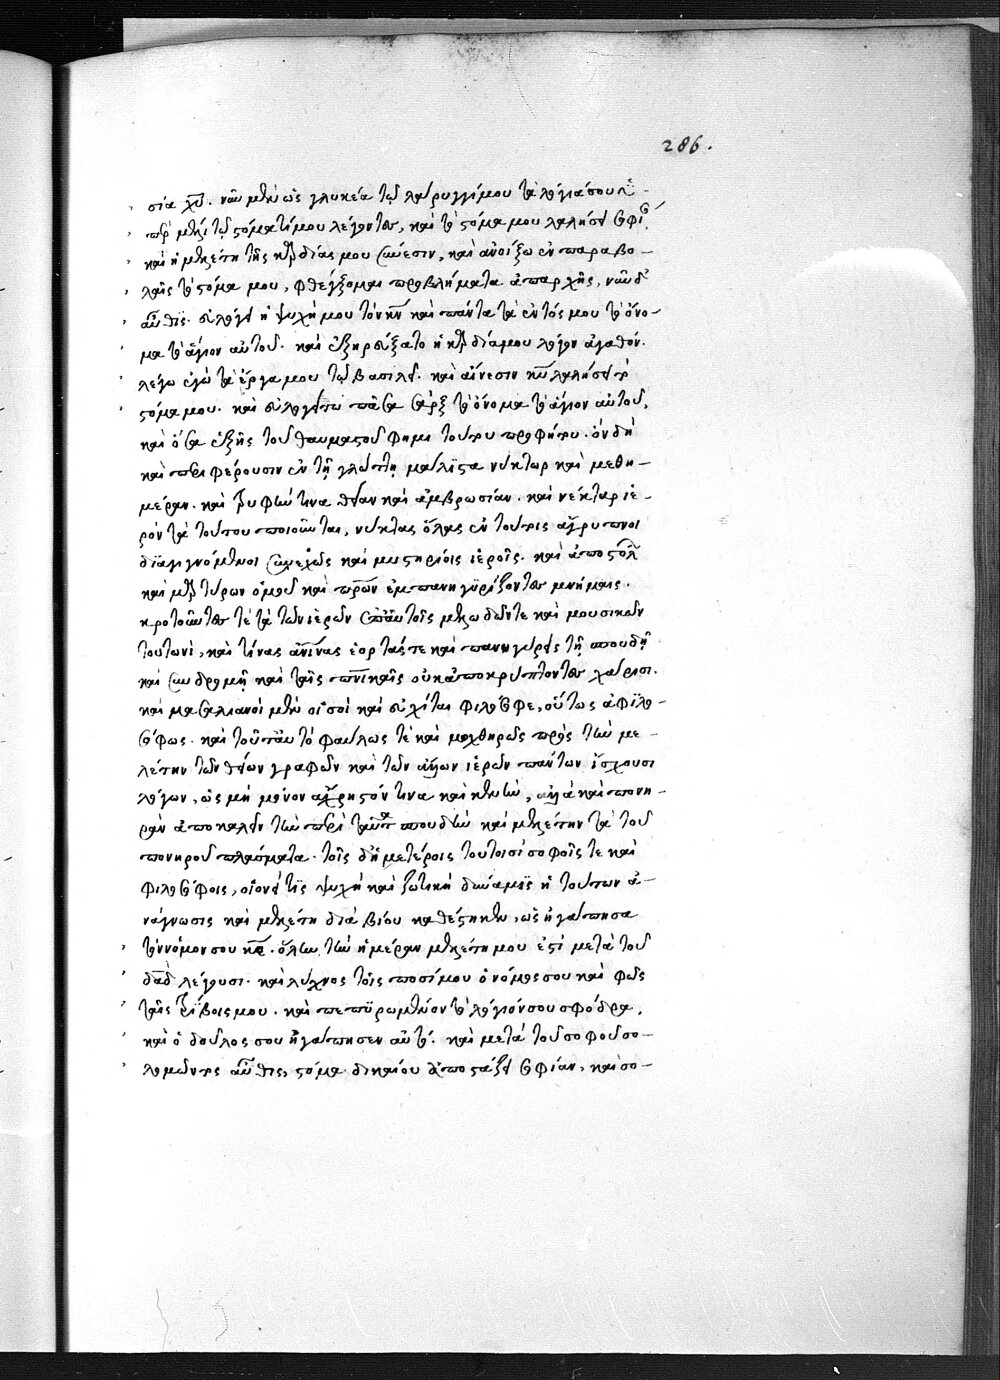 286.
σία χυ. νῦν μὲν ὡς γλυκέα τῷ λάρυγγί μου τὰ λόγιά σου
μέλι τῷ στόματί μου λέγοντες, καὶ τὸ στόμα μου λαλήσει σοφί
καὶ ἡ μελέτη τῆς καρδίας μου σύνεσιν, καὶ ἀνοίξω ἐν παραβο-
λαῖς τὸ στόμα μου, φθέγξομαι προβλήματα ἀπαρχῆς, νῦν δ
αὖθις. εὐλόγει ἡ ψυχή μου τὸν κν καὶ πάντα τὰ ἐντός μου τὸ ὄνο-
μα τὸ ἅγιον αὐτοῦ. καὶ ἐξηρεύξατο ἡ καρδία μου λόγον ἀγαθόν.
λέγω ἐγὼ τὰ ἔργα μου τῷ βασιλεῖ. καὶ αἴνεσιν κυ λαλήσει τὸ
στόμα μου. καὶ εὐλογείτω πᾶσα σὰρξ τὸ ὄνομα τὸ ἅγιον αὐτοῦ,
καὶ ὅσα ἑξῆς τοῦ θαυμαστοῦ φημι τούτου προφήτου. ὃν δὴ
καὶ περιφέρουσιν ἐν τῇ γλώττῃ μάλιστα νύκτωρ καὶ μεθη-
μέραν. καὶ τρυφήν τινα θείαν καὶ ἀμβροσίαν. καὶ νέκταρ ἱε-
ρὸν τὰ τούτου ποιοῦνται, νύκτας ὅλας ἐν τούτοις ἄγρυπνοι
διαγιγνόμενοι συνεχῶς καὶ μυστηρίοις ἱεροῖς. καὶ ἀποστόλων
καὶ μαρτύρων ὁμοῦ καὶ πρων ἐμπανηγυρίζοντες μνήμαις.
κροτοῦντές τε τὰ τῶν ἱερῶν ἐπᾴδοντες μελῳδῶν τε καὶ μουσικῶν
τουτωνὶ, καὶ τίνας ἀνίνας ἑορτάς τε καὶ πανηγύρεις τῇ σπουδῇ
καὶ συνδρομῇ καὶ ταῖς πνικαῖς οὐκ ἀποκρύπτοντες χάρισι.
καὶ μασαλιανοὶ μὲν οἱ σοὶ καὶ εὐχίται φιλόσοφε, οὕτως ἀφιλο-
σόφως. καὶ τοῦτ' αὐτὸ φαύλως τὲ καὶ μοχθηρῶς πρὸς τὴν με-
λέτην τῶν θείων γραφῶν καὶ τῶν ἄλλων ἱερῶν πάντων ἴσχουσι
λόγων, ὡς μὴ μόνον ἄχρηστόν τινα καὶ κενὴν, ἀλλὰ καὶ πονη-
ρὰν ἀποκαλεῖν τὴν περὶ ταῦτα σπουδὴν καὶ μελέτην τὰ τοῦ
πονηροῦ πλάσματα. τοῖς δ' ἡμετέροις τουτοισὶ σοφοῖς τε καὶ
φιλοσόφοις, οἱονεί τις ψυχὴ καὶ ζωτικὴ δύναμις ἡ τούτων ἀ-
νάγνωσις καὶ μελέτη διὰ βίου καθέστηκεν, ὡς ἠγάπησα
τὸν νόμον σου κε. ὅλην τὴν ἡμέραν μελέτη μου ἐστὶ μετὰ τοῦ
δαδ λέγουσι. καὶ λύχνος τοῖς ποσί μου ὁ νόμος σου καὶ φῶς
ταῖς τρίβοις μου. καὶ πεπυρωμένον τὸ λόγιόν σου σφόδρα,
καὶ ὁ δοῦλος σου ἠγάπησεν αὐτό. καὶ μετὰ τοῦ σοφοῦ σο-
λομῶντος αὖθις, στόμα δικαίου ἀποστάξει σοφίαν, καὶ σο-